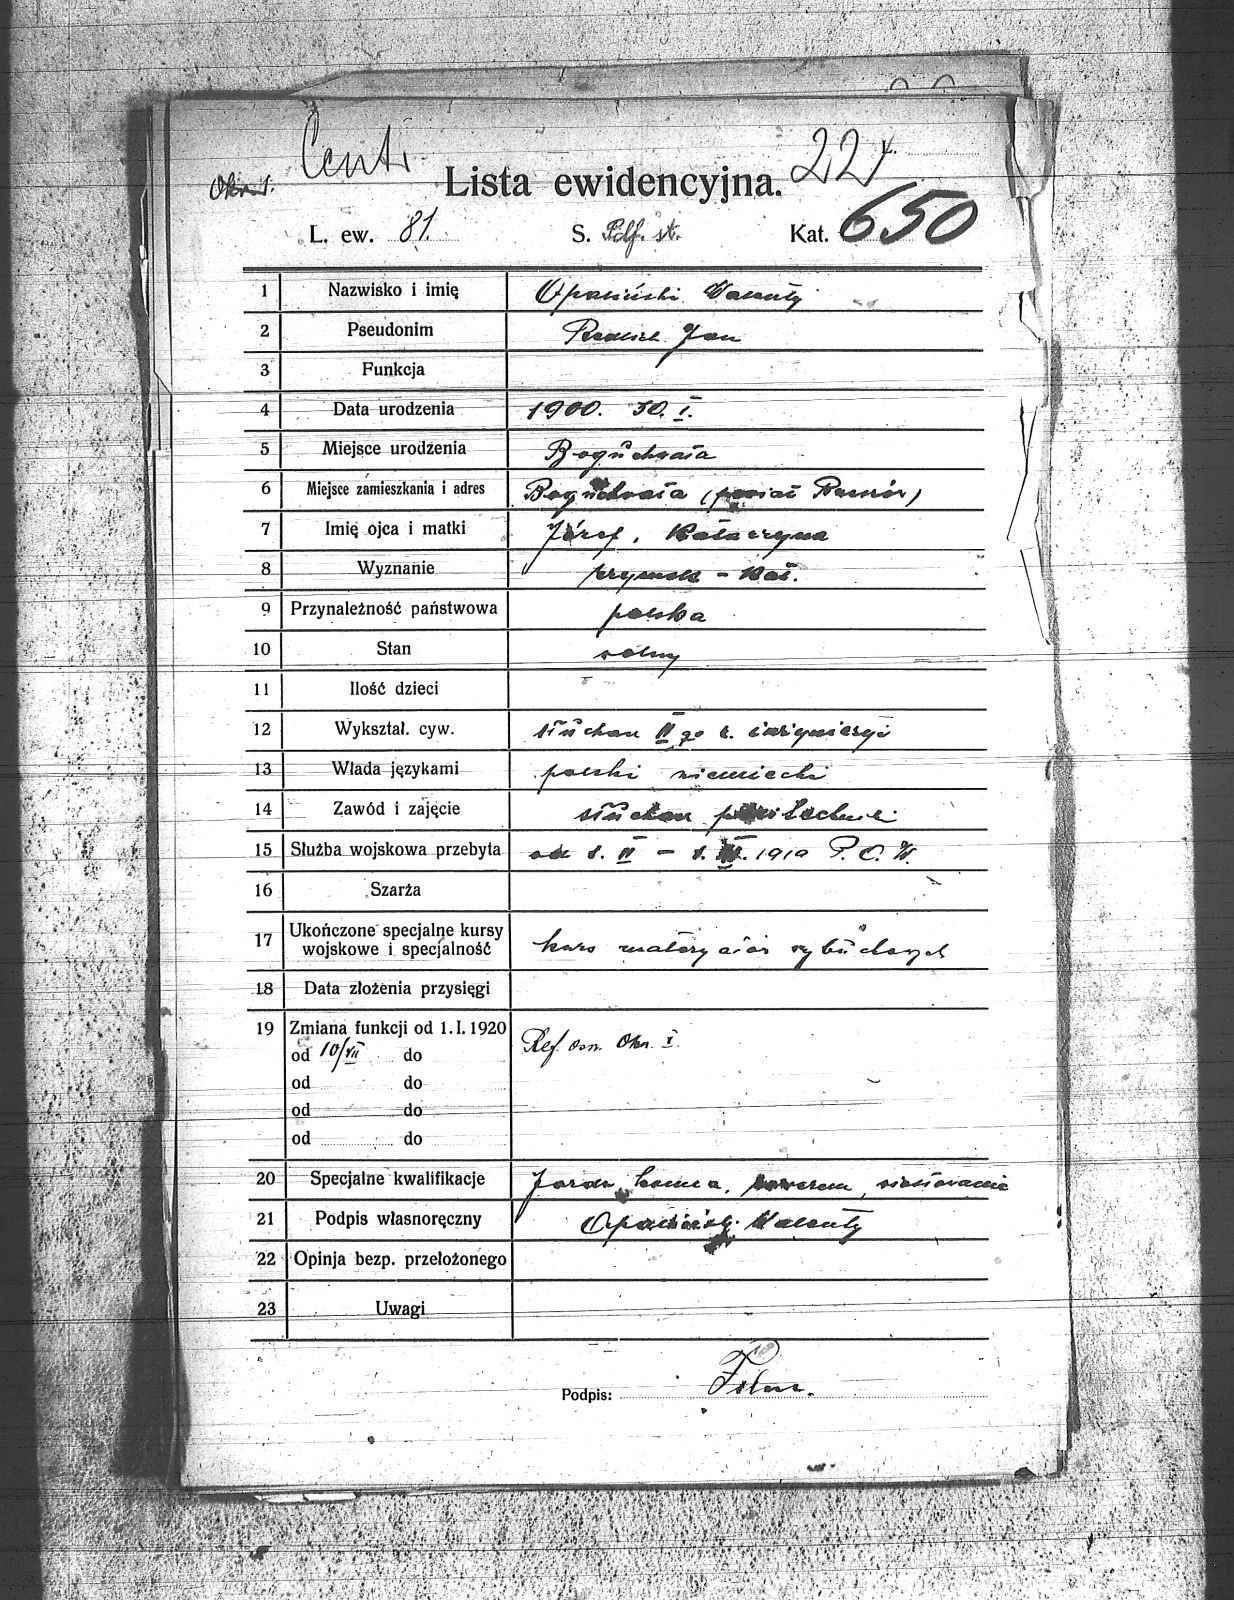 Centr.
Okr. I.
22
L.
Lista ewidencyjna.
L. ew. 81. S. Pdf. st. Kat. 650
1 Nazwisko i imię Opaliński Walenty
2 Pseudonim Jan
3 Funkcja
4 Data urodzenia 1900. 30. I.
5 Miejsce urodzenia Boguchwała
6 Miejsce zamieszkania i adres Boguchwała (powiat Rzeszów)
7 Imię ojca i matki Józef, Katarzyna
8 Wyznanie rzymsk - kat.
9 Przynależność państwowa polska
10 Stan wolny
11 Ilość dzieci
12 Wykształ. cyw. słuchacz II go r. inżynieryi
13 Włada językami polski niemiecki
14 Zawód i zajęcie słuchacz politechniki
15 Służba wojskowa przebyta od 1. II - 1. 1919 P. O. W.
16 Szarża
17 Ukończone specjalne kursy
wojskowe i specjalność kurs materyałów wybuchowych
18 Data złożenia przysięgi
19 Zmiana funkcji od 1. I. 1920
od 10/VII do Ref. osn. Okr. I.
od do
od do
od do
20 Specjalne kwalifikacje Jazda konna, rowerem, wiosłowanie
21 Podpis własnoręczny Opaliński Walenty
22 Opinja bezp. przełożonego
23 Uwagi
Podpis: